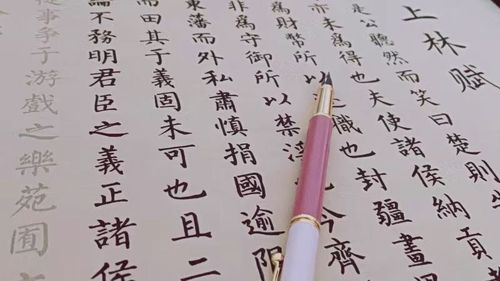 上林賦
是公聽然而笑曰楚則
亦未為得也夫使諸侯納貢
為財幣所以職也封疆畫
非為守御所以禁淫今齊
東藩而外私肅慎捐國逾限
而田其于義固未可也且二
論不務明君臣之義正諸侯
事爭于游戲之樂苑囿